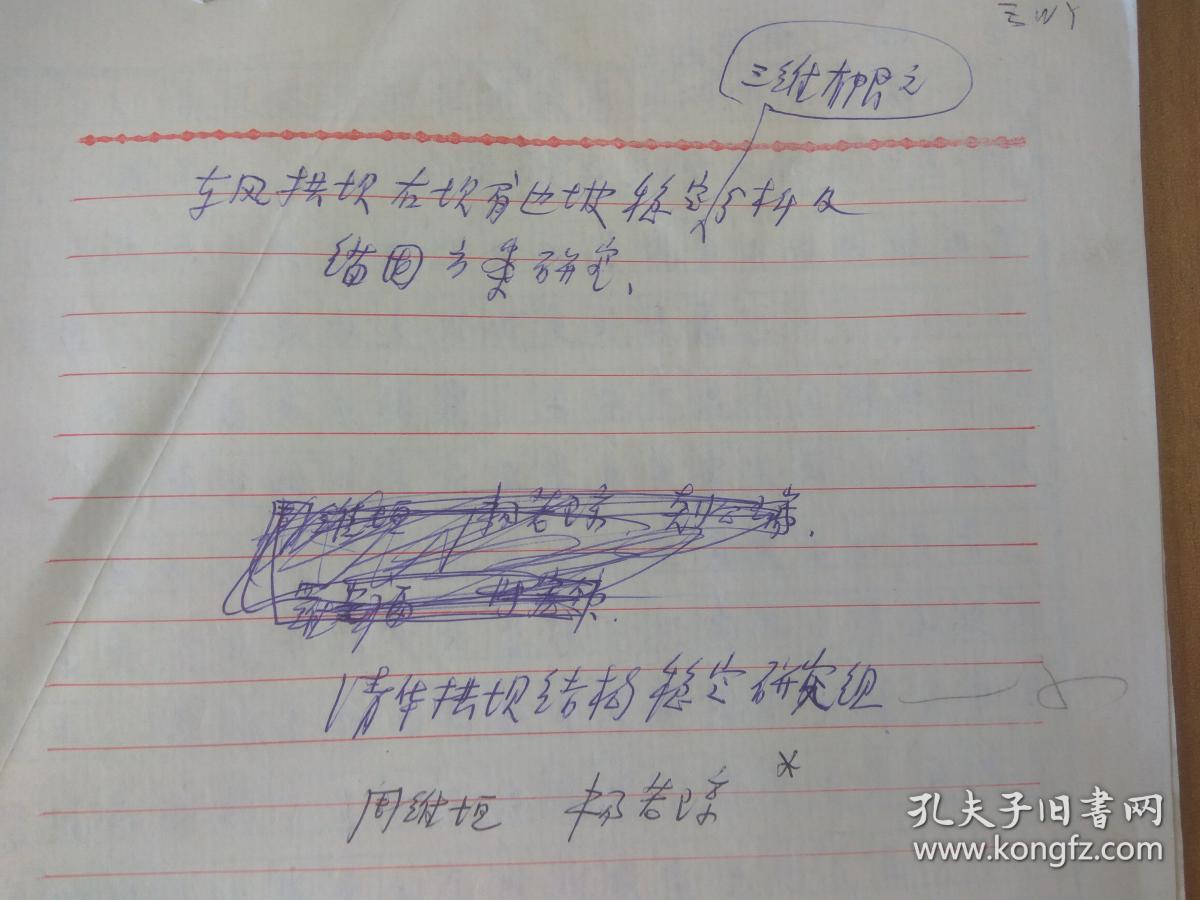 WY
三维有限元
东风拱坝左坝肩边坡稳定分析及
锚固方案研究、
周维垣 杨若琼
清华拱坝结构稳定研究组
周维垣 杨若琼 *
孔夫子旧书网
www.kongfz.com